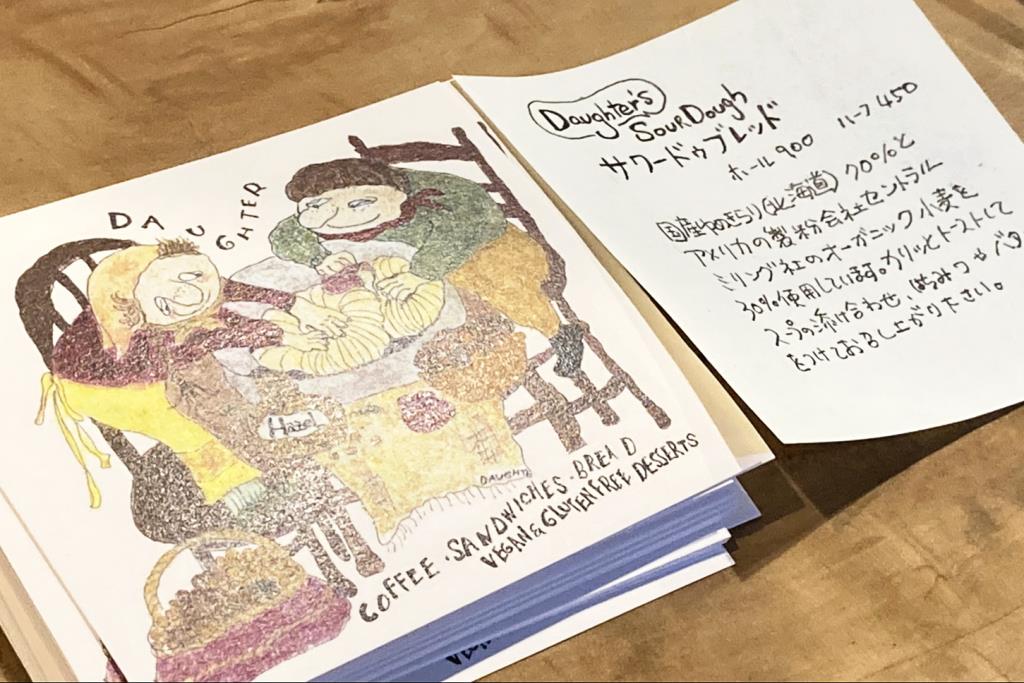 DAUGHTER
Hazel
DAUGHTE
COFFEE・SANDWICHES・BREAD
VEGAN & GLUTENFREE DESSERTS
Daughter's
SourDough
サワードゥブレッド
ホール900 ハーフ450
国産ゆめきらり(北海道)70%と
アメリカの製粉会社セントラル
ミリング社のオーガニック小麦を
30%使用しています。カリッとトーストして
スープの添け合わせ、はちみつやバタ
をつけてお召し上がりください。